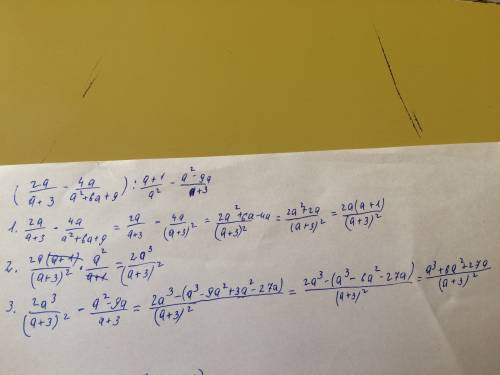 (2a/(a+3) - 4a/(a²+6a+9)) : (a+1)/a² - (a²-9a)/(a+3)
1. 2a/(a+3) - 4a/(a²+6a+9) = 2a/(a+3) - 4a/(a+3)² = (2a²+6a-4a)/(a+3)² = (2a²+2a)/(a+3)² = 2a(a+1)/(a+3)²
2. 2a(a+1)/(a+3)² · a²/(a+1) = 2a³/(a+3)²
3. 2a³/(a+3)² - (a²-9a)/(a+3) = (2a³-(a³-9a²+3a²-27a))/(a+3)² = (2a³-(a³-6a²-27a))/(a+3)² = (a³+6a²+27a)/(a+3)²